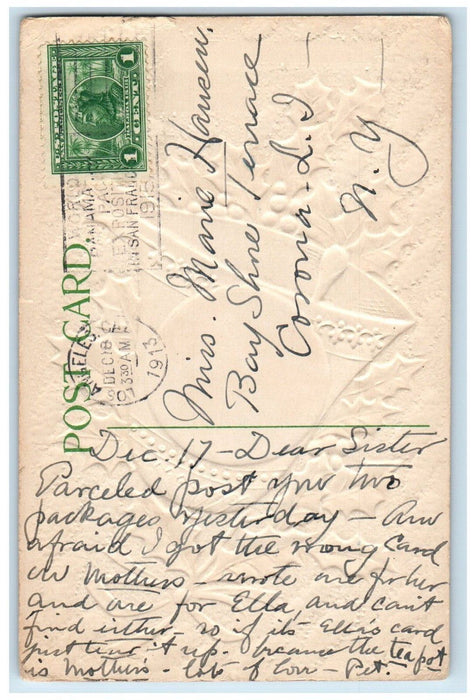 U.S. POSTAGE
1 CENT 1
WORLD'S
PANAMA
PAC
EXPOSITI
IN SAN FRANC
1915
ANGELES,
DEC 18
3 30 AM
1913
POST CARD.
Miss. Marie Hansen.
Bay Shore Terrace
Corona - L.I
N. Y
Dec 17 - Dear Sister
Parceled post you two
packages yesterday - Am
afraid I got the wrong Card
in Mothers - wrote one for her
and one for Ella, and can't
find either, so if its Ella's card
just tear it up. because the teapot
is Mother's. lots of love - Pet.